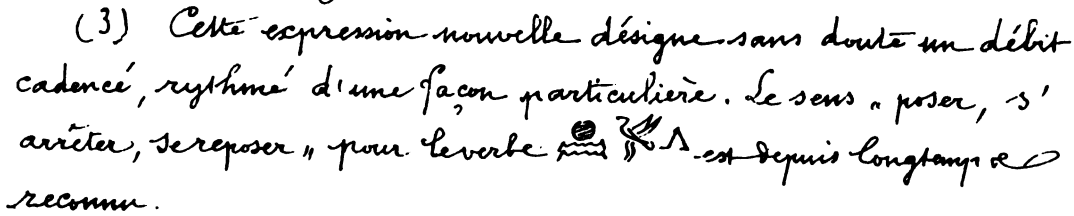 (3) Cette expression nouvelle désigne sans doute un débit
cadencé, rythmé d'une façon particulière. Le sens „ poser, s'
arrêter, se reposer „ pour le verbe est depuis longtemps
reconnu.